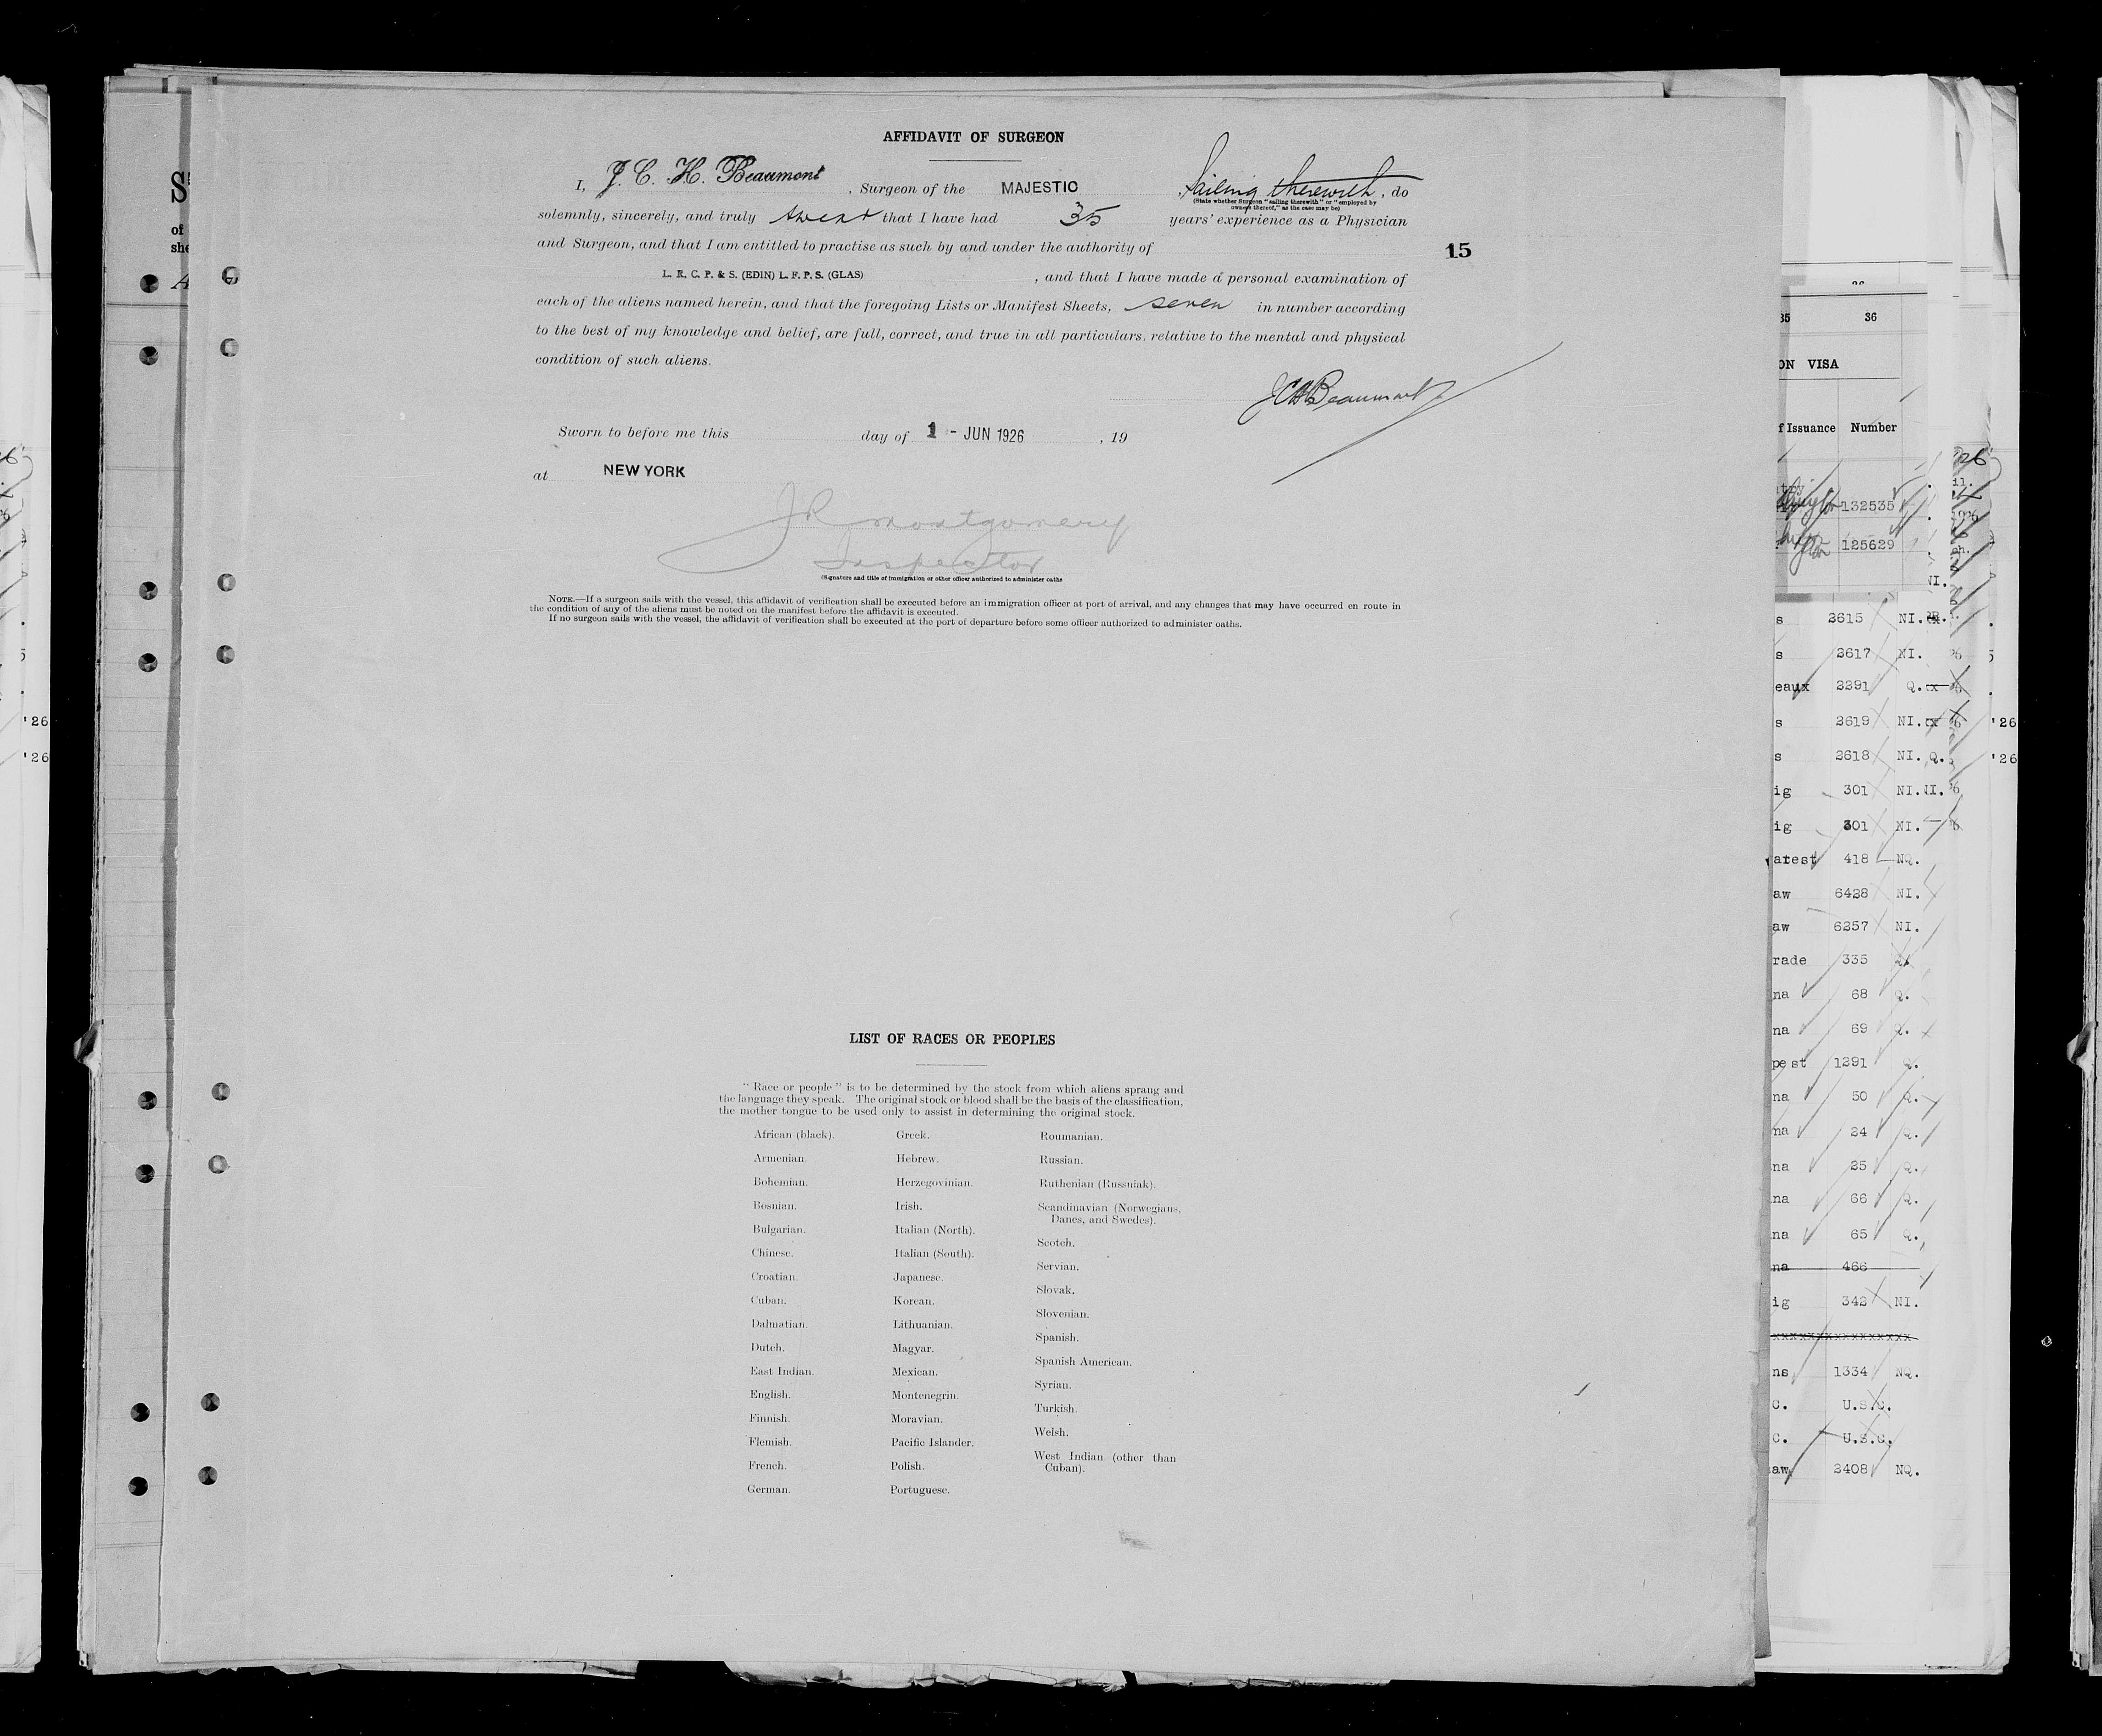 AFFIDAVIT OF SURGEON
I, J. C. H. Beaumont, Surgeon of the MAJESTIC, Sailing therewith, do
(State whether Surgeon "sailing therewith" or "employed by
owners thereof," as the case may be)
solemnly, sincerely, and truly swear that I have had 35 years' experience as a Physician
and Surgeon, and that I am entitled to practise as such by and under the authority of
15
L. R. C. P. & S. (EDIN) L. F. P. S. (GLAS), and that I have made a personal examination of
each of the aliens named herein, and that the foregoing Lists or Manifest Sheets, seven in number according
to the best of my knowledge and belief, are full, correct, and true in all particulars, relative to the mental and physical
condition of such aliens.
JCH Beaumont
Sworn to before me this day of 1 - JUN 1926, 19
at NEW YORK
J R Montgomery
Inspector
(Signature and title of immigration or other officer authorized to administer oaths
NOTE.—If a surgeon sails with the vessel, this affidavit of verification shall be executed before an immigration officer at port of arrival, and any changes that may have occurred en route in
the condition of any of the aliens must be noted on the manifest before the affidavit is executed.
If no surgeon sails with the vessel, the affidavit of verification shall be executed at the port of departure before some officer authorized to administer oaths.
LIST OF RACES OR PEOPLES
"Race or people" is to be determined by the stock from which aliens sprang and
the language they speak. The original stock or blood shall be the basis of the classification,
the mother tongue to be used only to assist in determining the original stock.
African (black).
Armenian.
Bohemian.
Bosnian.
Bulgarian.
Chinese.
Croatian.
Cuban.
Dalmatian.
Dutch.
East Indian.
English.
Finnish.
Flemish.
French.
German.
Greek.
Hebrew.
Herzegovinian.
Irish.
Italian (North).
Italian (South).
Japanese.
Korean.
Lithuanian.
Magyar.
Mexican.
Montenegrin.
Moravian.
Pacific Islander.
Polish.
Portuguese.
Roumanian.
Russian.
Ruthenian (Russniak).
Scandinavian (Norwegians,
Danes, and Swedes).
Scotch.
Servian.
Slovak.
Slovenian.
Spanish.
Spanish American.
Syrian.
Turkish.
Welsh.
West Indian (other than
Cuban).
35 36
ON VISA
f Issuance Number
132535
125629
s 2615 NI.
s 2617 NI.
eaux 2291 Q.
s 2619 NI.
s 2618 NI. Q.
ig 301 NI.
ig 301 NI.
arest 418 NQ.
aw 6428 NI.
aw 6257 NI.
rade 335
na 68 Q.
na 69 Q.
pest 1291 Q.
na 50 Q.
na 24 Q.
na 25 Q.
na 66 Q.
na 65 Q.
na 466
ig 342 NI.
xxxxxxxxxxxxxxxx
ns 1334 NQ.
C. U.S.C.
C. U.S.C.
aw 2408 NQ.
'26
'26
'26
'26